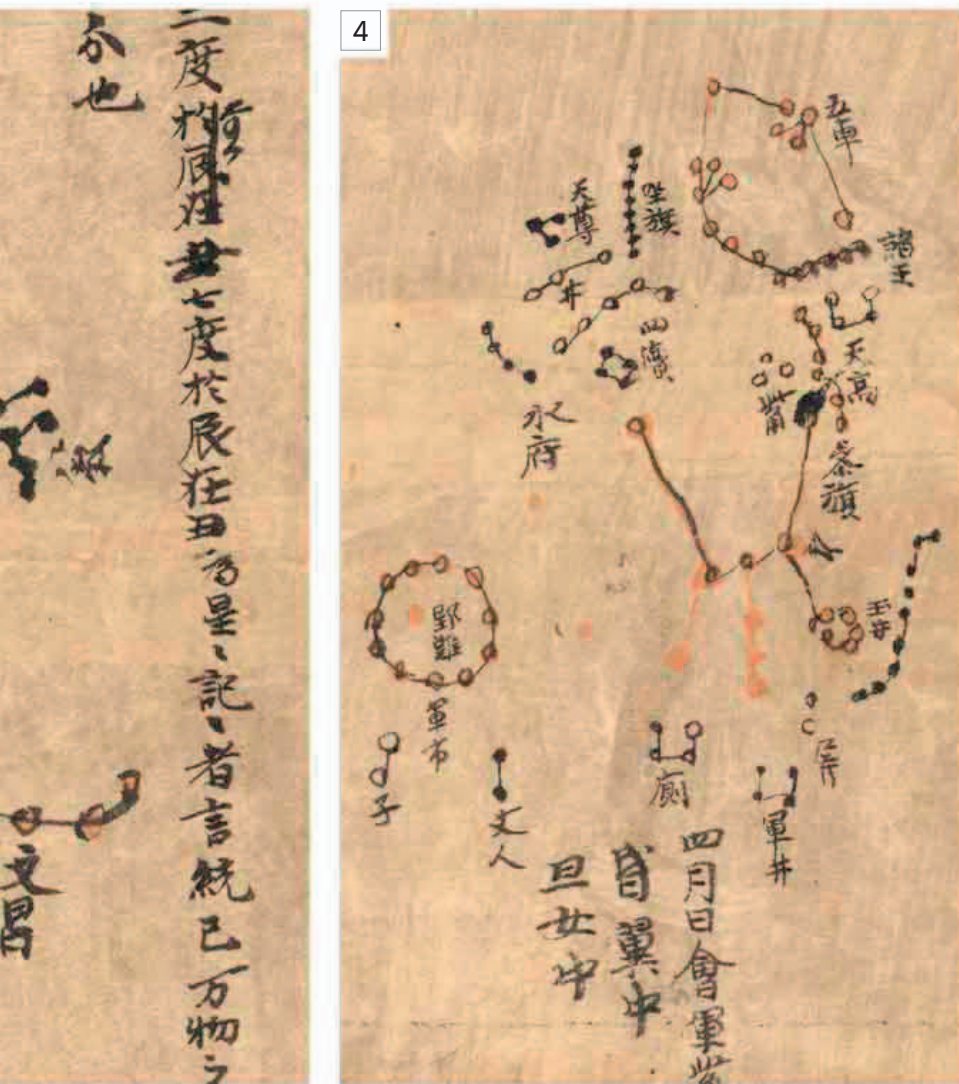 二度於辰在丑七度於辰在丑為星、記、者言統已万物之
分也
文昌
4
五車
諸王
坐旗
天尊
井
四瀆
天高
觜
參旗
水府
參
玉井
野雞
軍市
子
丈人
廁
屏
軍井
四月日會畢觜
昏翼中
旦女中